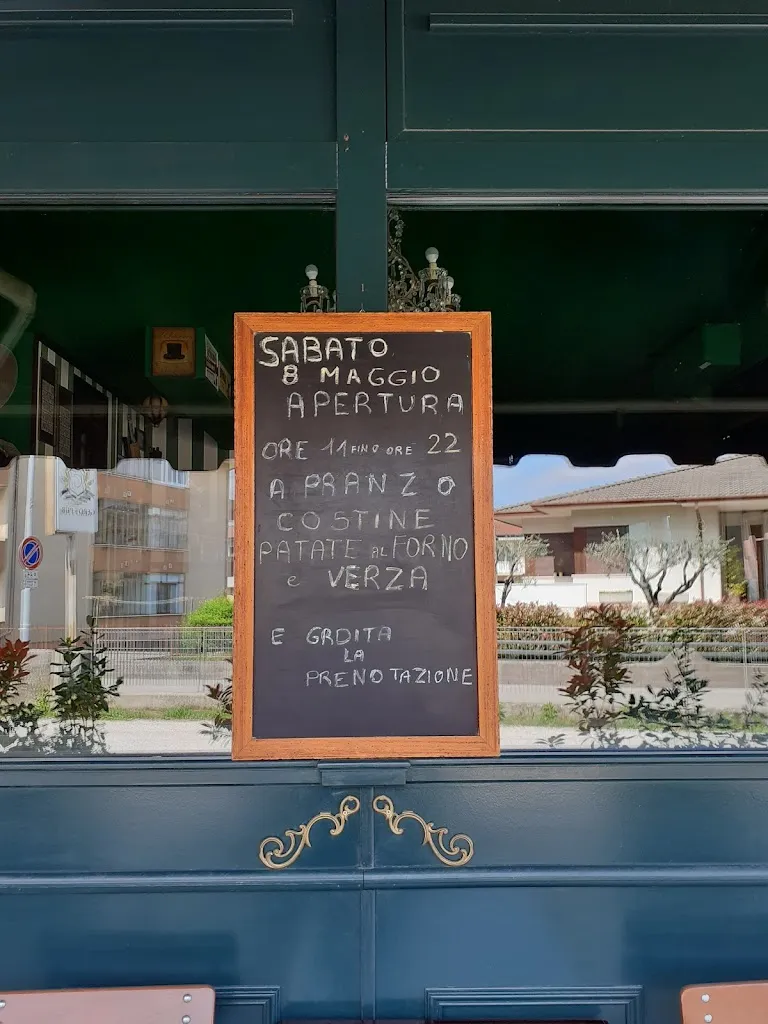 SABATO
8 MAGGIO
APERTURA
ORE 11 FINO ORE 22
A PRANZO
COSTINE
PATATE AL FORNO
e VERZA
E GRDITA
LA
PRENOTAZIONE